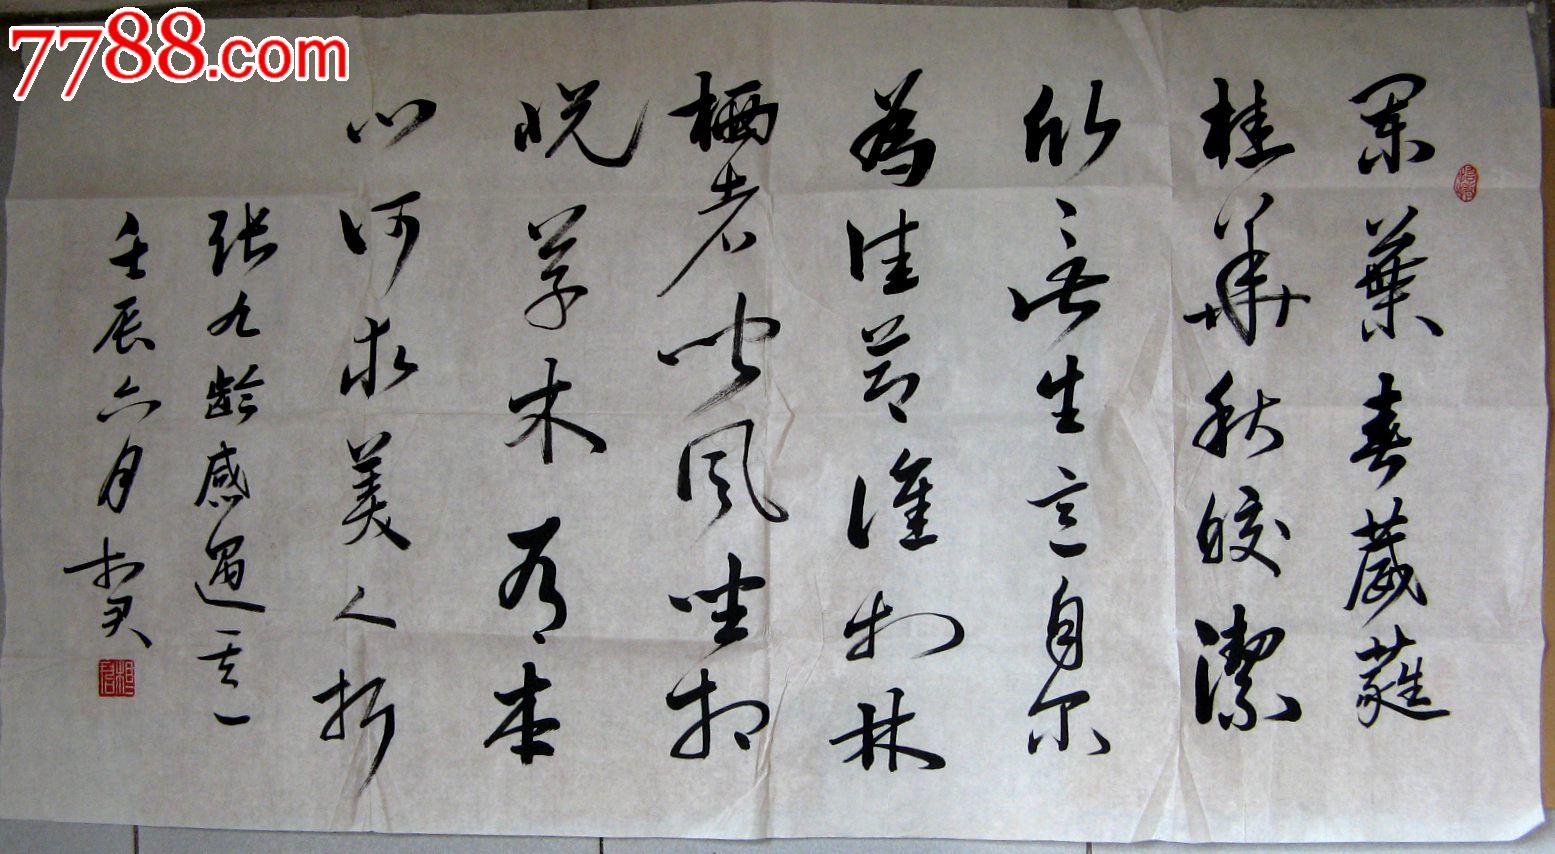 7788.com
蘭葉春葳蕤
桂華秋皎潔
欣〻此生意自尔
為佳節誰知林
栖者聞風坐相
悦草木有本
心何求美人折
张九龄感遇其一
壬辰六月